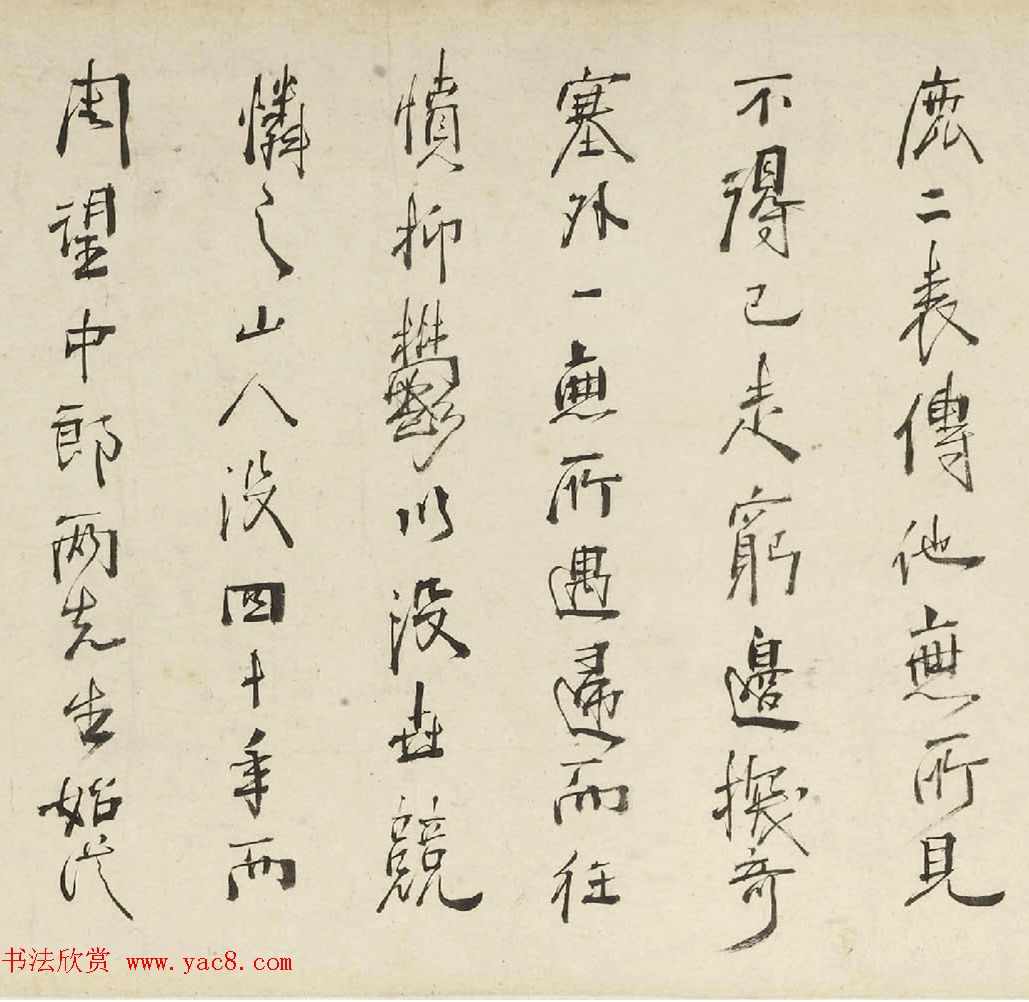 鹿二表傳他無所見
不得已走窮邊探奇
塞外一無所遇歸而往
憤抑鬱以没世競
憐之山人没四十年而
陶望中郎兩先生始從
书法欣赏 www.yac8.com